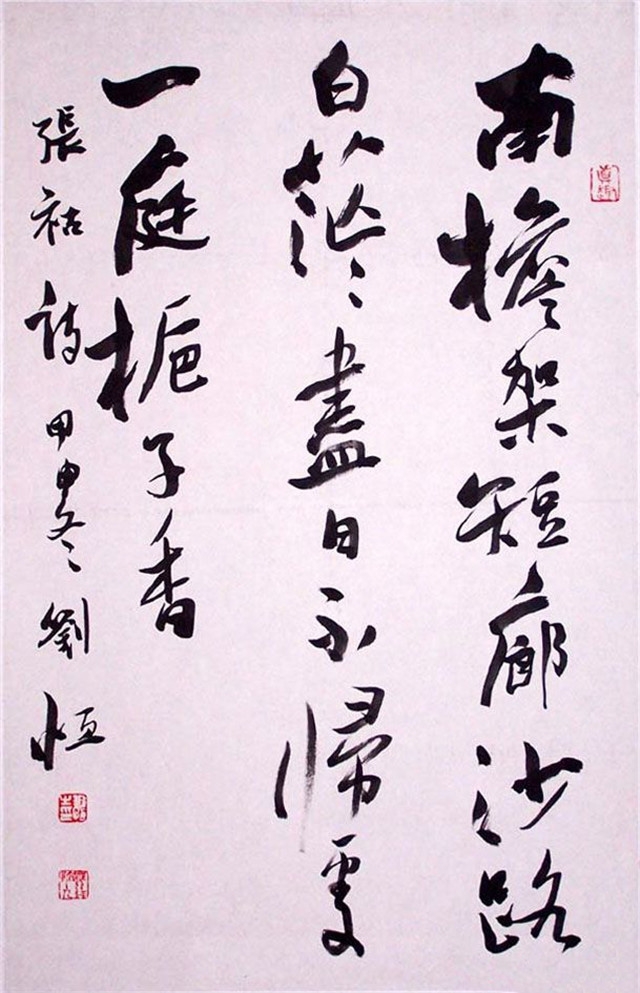 南檐架短廊沙路
白茫々盡日不歸處
一庭梔子香
張祜詩甲申冬劉恒